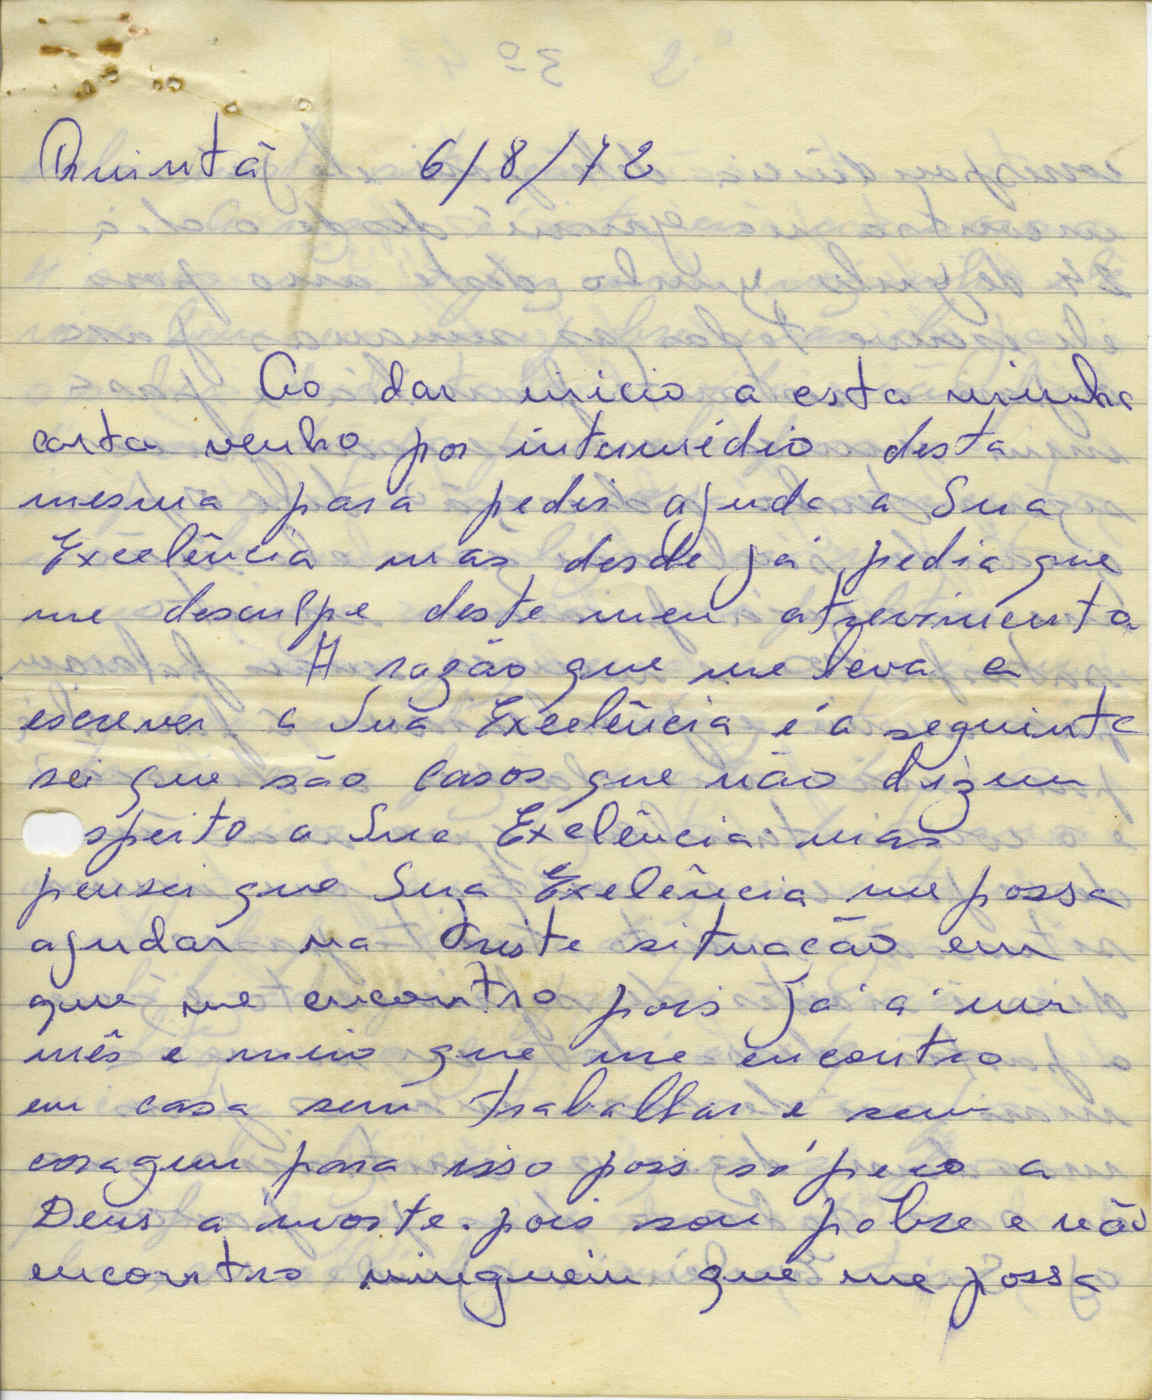 Quintã 6/8/72
Ao dar inicio a esta minha
carta venho por intermédio desta
mesma para pedir ajuda a Sua
Excelência mas desde já pedia que
me desculpe deste meu atrevimento
A razão que me leva a
escrever a Sua Excelência é a seguinte
sei que são casos que não dizem
speito a Sua Exelência mas
pensei que Sua Exelência me possa
ajudar na triste situação em
que me encontro pois já á um
mês e meio que me encontro
em casa sem trabalhar e sem
coragem para isso pois só peco a
Deus a morte. pois sou pobre e não
encontro ninguem que me possa